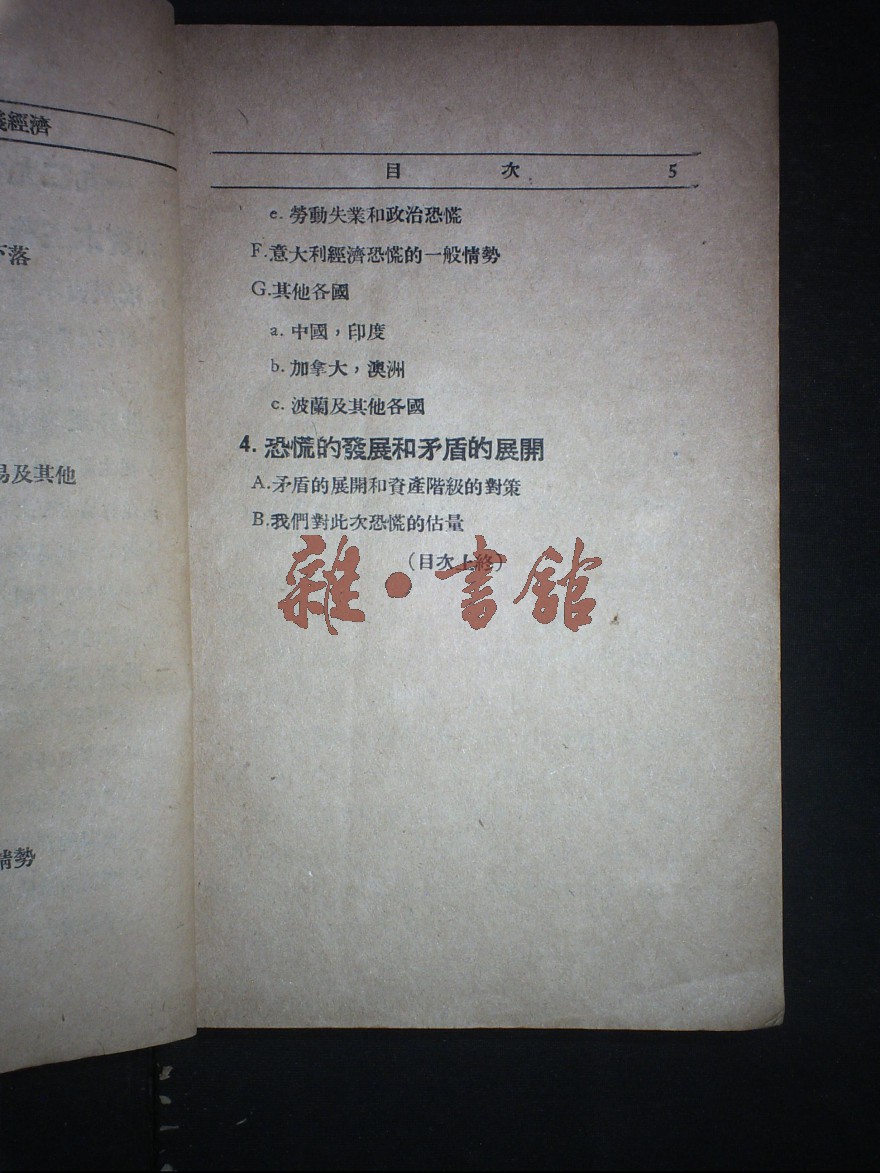 經濟
下落
易及其他
情勢
目 次 5
e. 勞動失業和政治恐慌
F.意大利經濟恐慌的一般情勢
G.其他各國
a. 中國，印度
b. 加拿大，澳洲
c. 波蘭及其他各國
4. 恐慌的發展和矛盾的展開
A.矛盾的展開和資產階級的對策
B.我們對此次恐慌的估量
(目次上終)
雜•書館